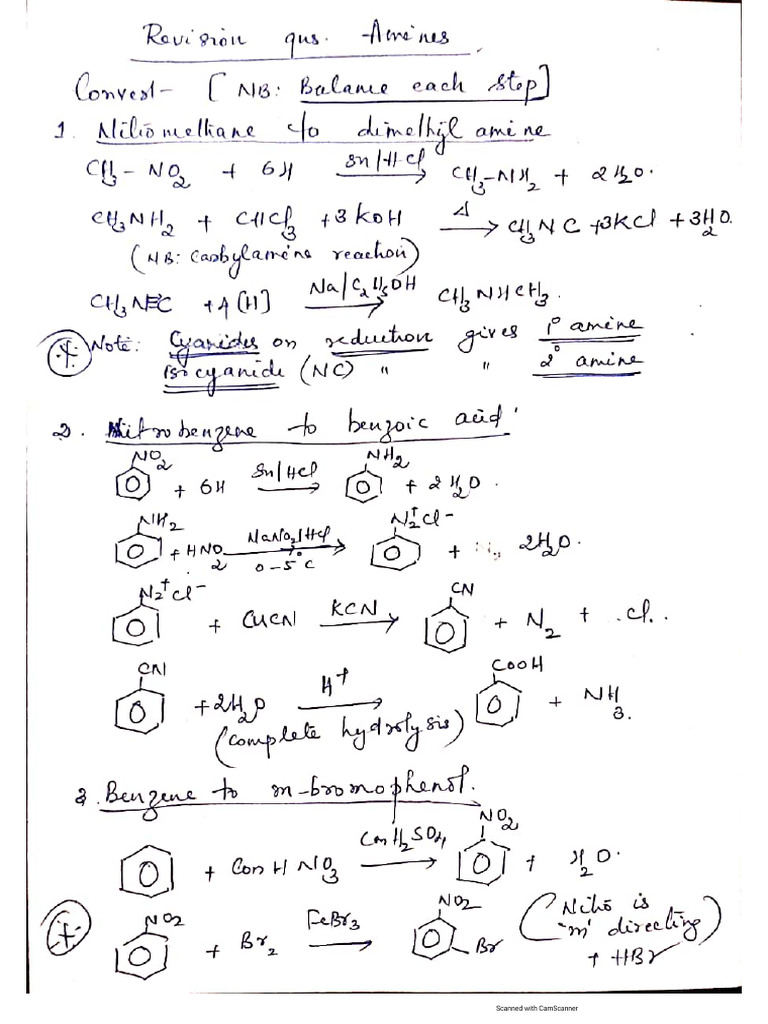 Revision qus. - Amines
Convert - [NB: Balance each step]
1. Nitromethane to dimethyl amine
CH3 - NO2 + 6H Sn/HCl → CH3-NH2 + 2H2O.
CH3NH2 + CHCl3 + 3KOH Δ → CH3NC + 3KCl + 3H2O.
(NB: Carbylamine reaction)
CH3N≡C + 4[H] Na/C2H5OH → CH3NHCH3.
* Note: Cyanides on reduction gives 1° amine
Isocyanide (NC) " " 2° amine
2. Nitrobenzene to benzoic acid
NO2 + 6H Sn/HCl → NH2 + 2H2O.
NH2 + HNO2 NaNO2/HCl 0-5°C → N2+Cl- + 2H2O.
N2+Cl- + CuCN KCN → CN + N2 + Cl.
CN + 2H2O H+ → COOH + NH3.
(complete hydrolysis)
3. Benzene to m-bromophenol.
+ Con HNO3 Con H2SO4 → NO2 + H2O.
* NO2 + Br2 FeBr3 → NO2 Br (Nitro is 'm' directing)
+ HBr
Scanned with CamScanner